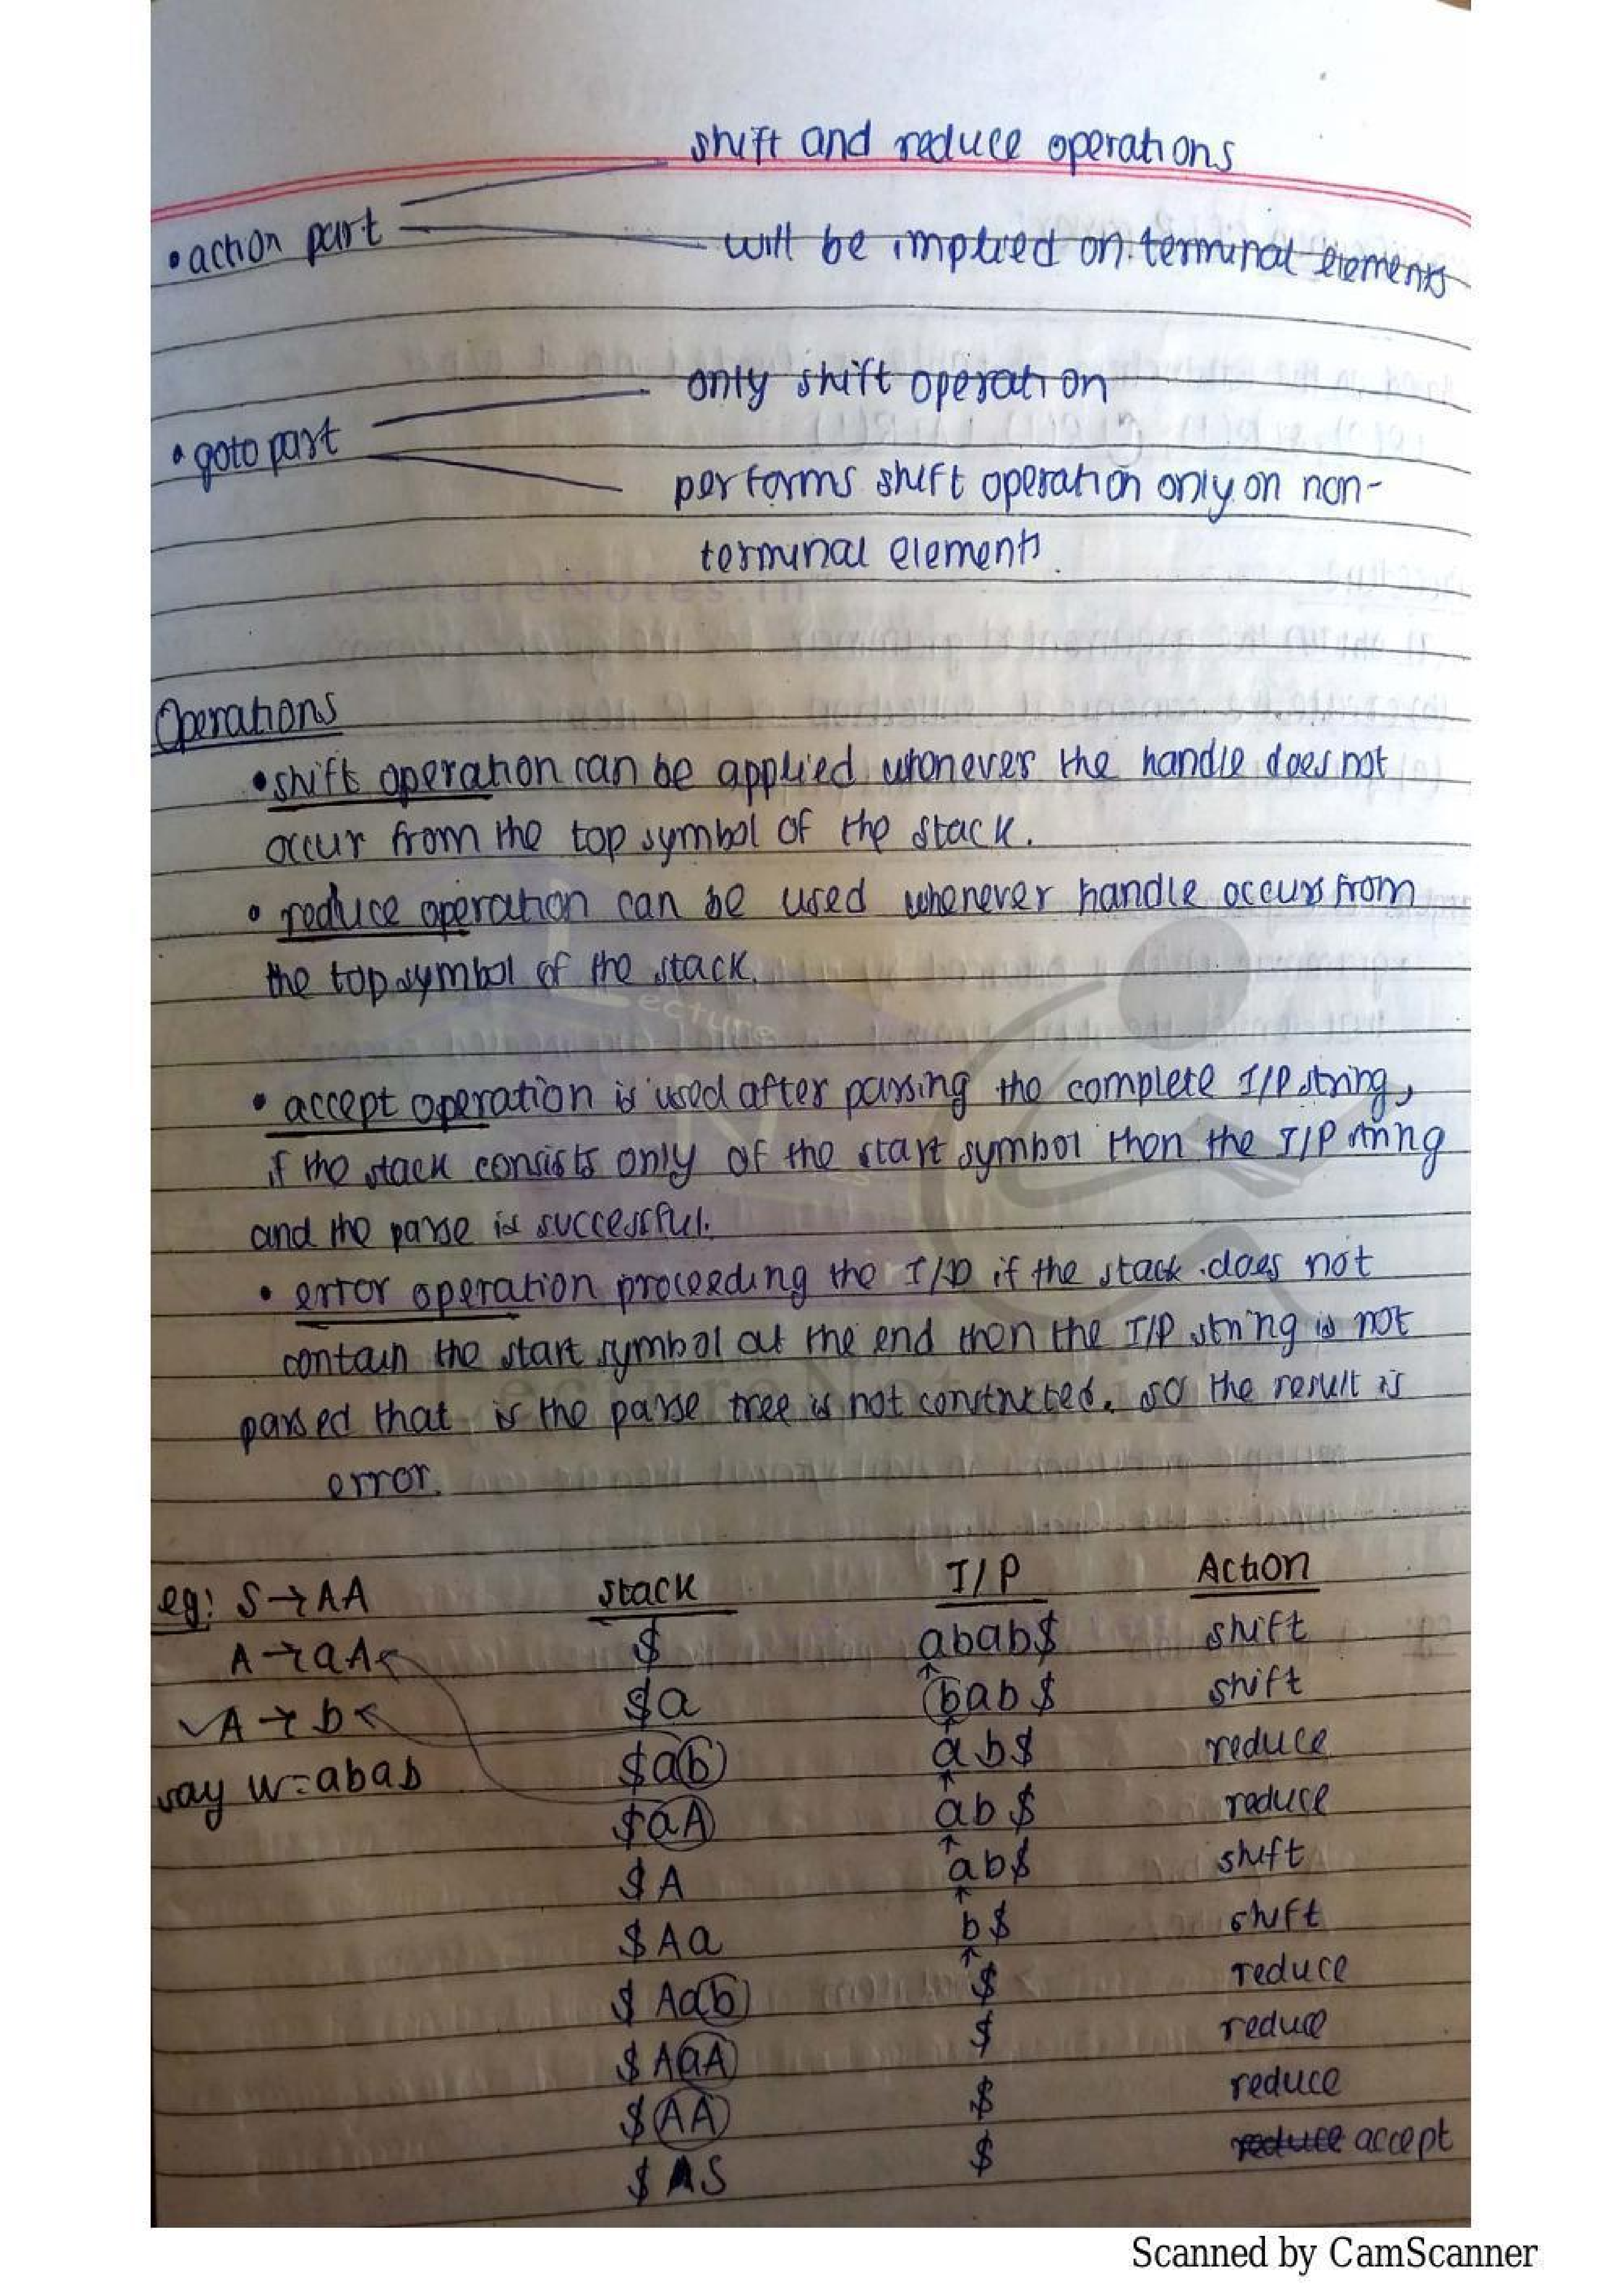 shift and reduce operations
• action part
will be implied on terminal elements
only shift operation
• goto part
performs shift operation only on non-
terminal elements.
LectureNotes.in
Operations
• shift operation can be applied whenever the handle does not
occur from the top symbol of the stack.
• reduce operation can be used whenever handle occurs from
the top symbol of the stack.
Lecture
Notes
• accept operation is used after parsing the complete I/P string,
if the stack consists only of the start symbol then the I/P string
and the parse is successful.
• error operation proceeding the I/P if the stack does not
contain the start symbol at the end then the I/P string is not
parsed that is the parse tree is not constructed. so the result is
LectureNotes.in
error.
eg: S → AA stack I/P Action
$ abab$ shift
A → aA
$a bab$ shift
✓A → b
$ab ab$ reduce
say w=abab
$aA ab$ reduce
$A ab$ shift
$Aa b$ shift
$Aab $ reduce
$AaA $ reduce
$AA $ reduce
$AS $ reduce accept
Scanned by CamScanner